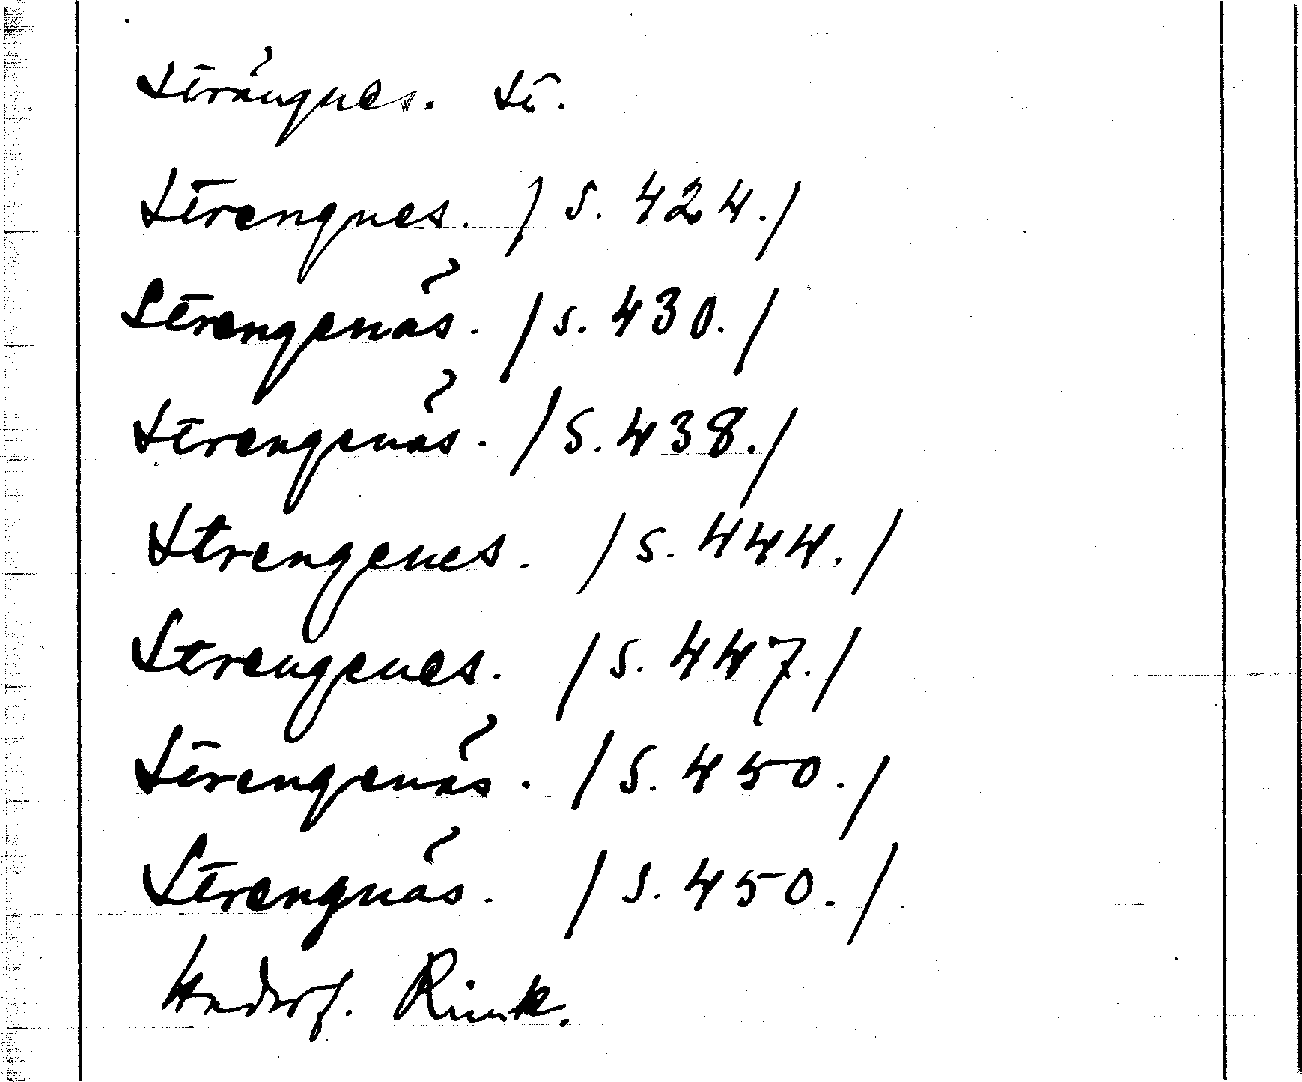 Strängnes. St.
Strengnes. / S. 424. /
Strengenäs. / S. 430. /
Strengenäs. / S. 438. /
Strengenes. / S. 444. /
Strengenes. / S. 447. /
Strengenäs. / S. 450. /
Strengnäs. / S. 450. /
Undersf. Rink.